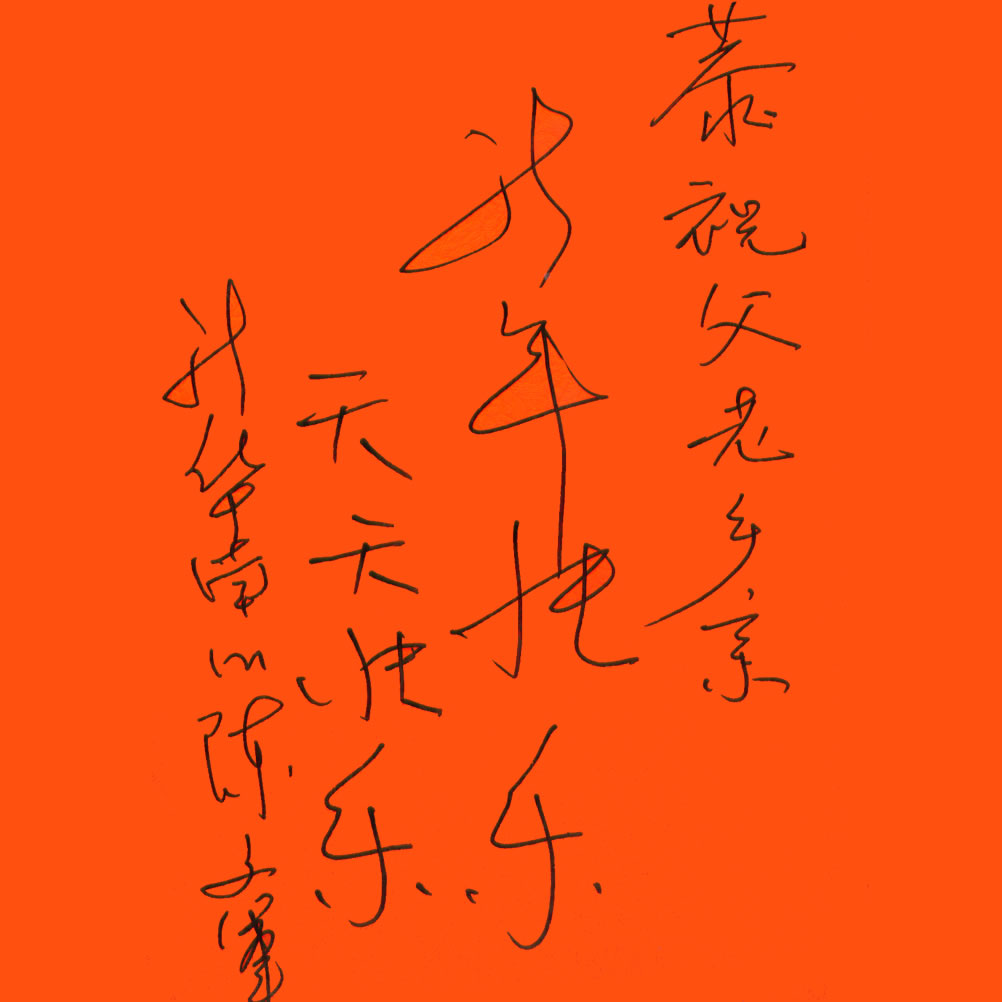 恭祝父老乡亲
新年快乐
天天快乐
新华 陈文